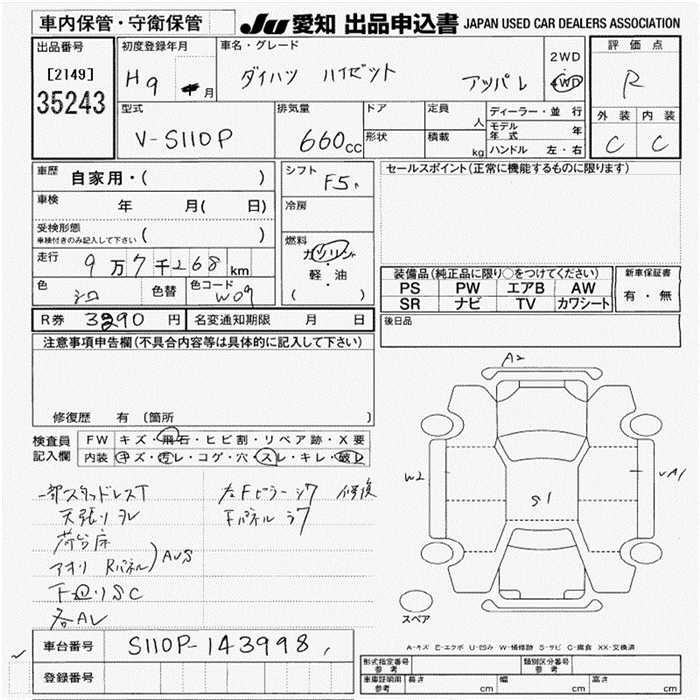 車内保管・守衛保管
JU 愛知 出品申込書 JAPAN USED CAR DEALERS ASSOCIATION
出品番号
[2149]
35243
初度登録年月
H9 年 月
車名・グレード
ダイハツ ハイゼット アツパレ
2WD
4WD
評価点
R
外装 内装
C C
型式
V-S110P
排気量
660cc
ドア
形状
定員 人
積載 kg
ディーラー・並行
モデル年式 年
ハンドル 左・右
車歴 自家用・( )
車検 年 月( 日)
受検形態
車検付きのみ記入して下さい ( )
走行 9万7千268km
色 シロ 色替 色コード W09
R券 3290円 名変通知期限 月 日
シフト F5
冷房
燃料
ガソリン
・
軽・油
( )
セールスポイント(正常に機能するものに限ります)
装備品(純正品に限り○をつけてください)
PS PW エアB AW
SR ナビ TV カワシート
新車保証書
有・無
後日品
注意事項申告欄(不具合内容等は具体的に記入して下さい)
修復歴 有〔箇所 〕
検査員記入欄
FW キズ・飛石・ヒビ割・リペア跡・X要
内装 キズ・汚レ・コゲ・穴・スレ・キレ・破レ
一部スタッドレスT
天張りヨレ
荷台床
アオリ Rパネル) AUS
下廻りSC
各AU
左Fピラーシワ 修復
Fパネル シワ
A2
W2
S1
A1
スペア
A-キズ E-エクボ U-凹み W-補修跡 S-サビ C-腐食 XX-交換済
車台番号 S110P-143998
登録番号
形式指定番号 参考
類別区分番号 参考
車庫証明用 参考 長さ cm 幅 cm 高さ cm